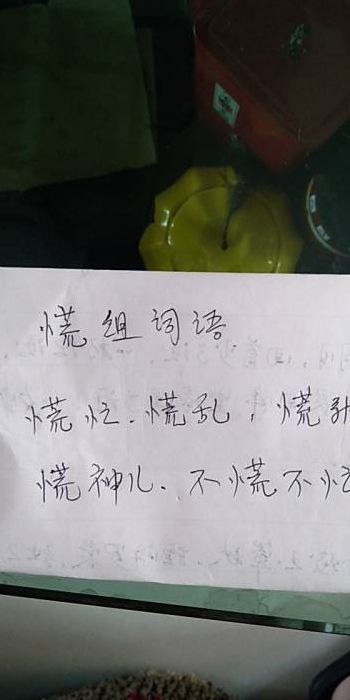 慌组词语.
慌忙.慌乱,慌
慌神儿、不慌不忙